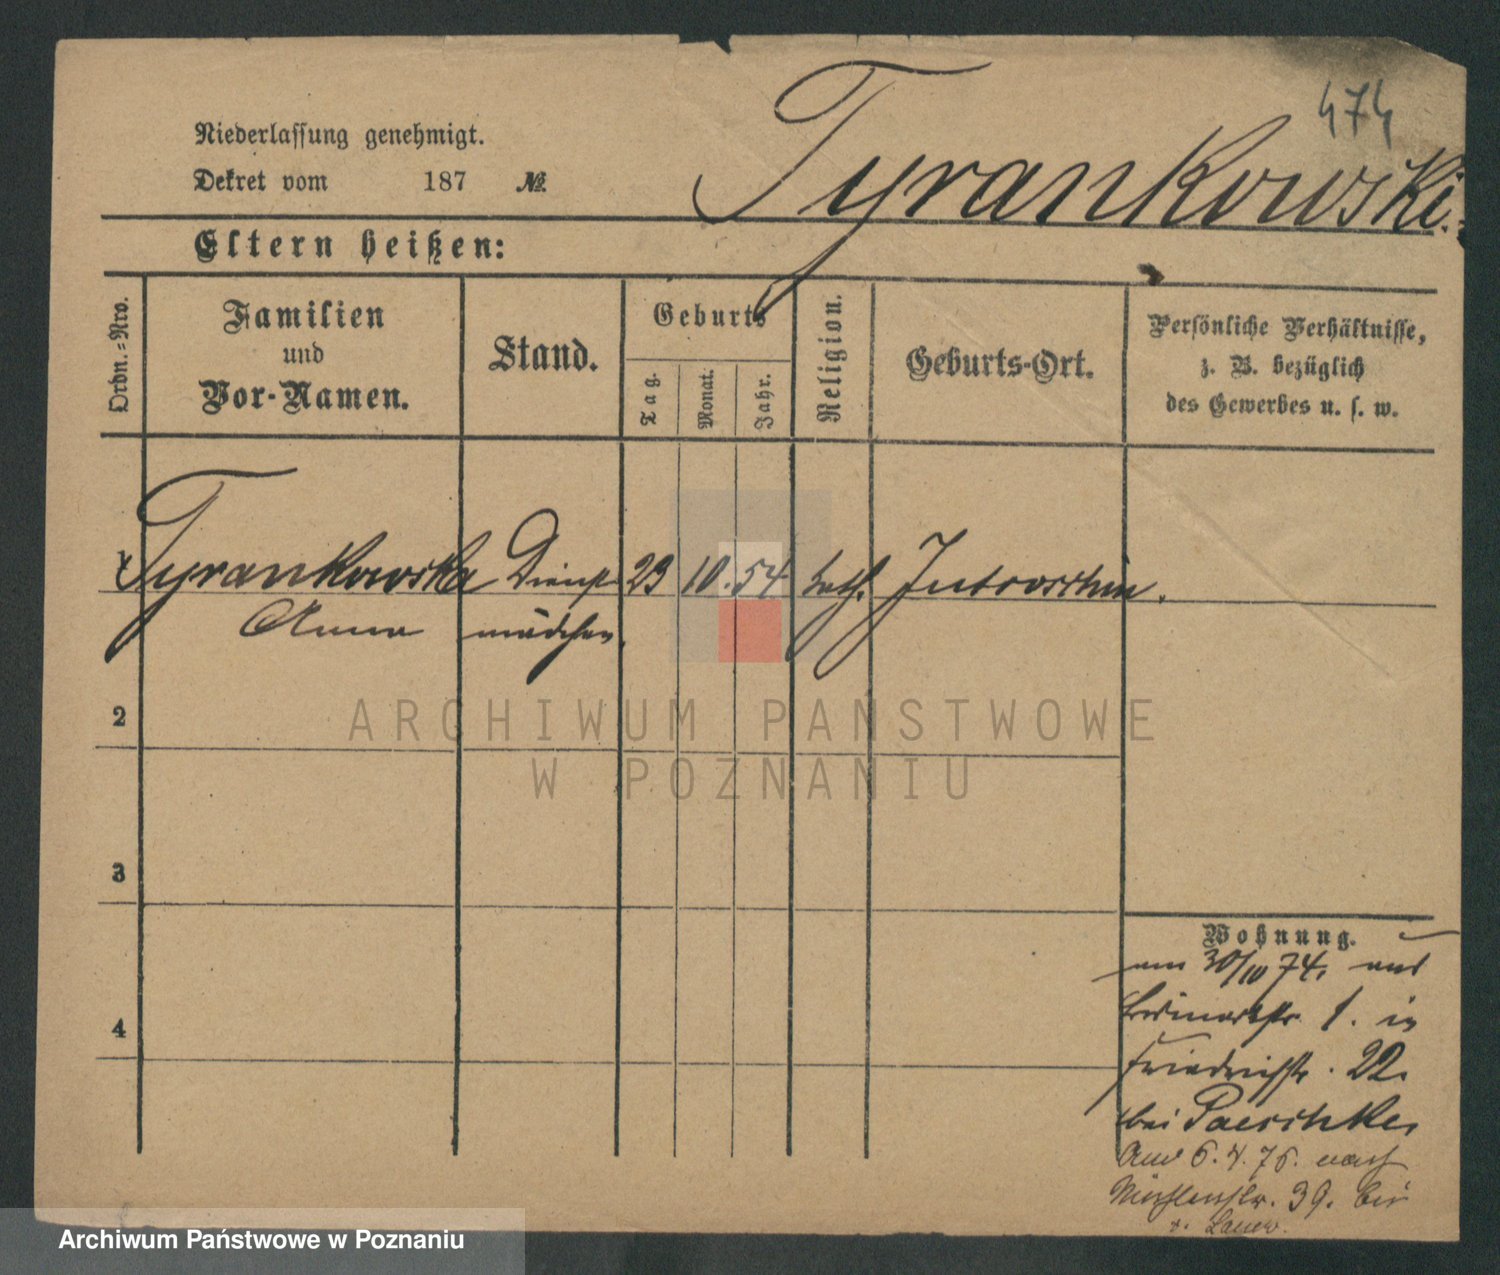 474
Niederlassung genehmigt.
Dekret vom 187 №
Tyrankowski.
Eltern heißen:
Ordn.-Nro.
Familien
und
Vor-Namen.
Stand.
Geburts
Tag.
Monat.
Jahr.
Religion.
Geburts-Ort.
Persönliche Verhältnisse,
z. B. bezüglich
des Gewerbes u. s. w.
1 Tyrankowska Dienst 23 10. 54 kath. Jutroschin.
Anna mädchen.
2
3
4
Wohnung.
am 30/10 74. aus
1. in
Friedrichstr. 22.
bei Paeschke.
And 6. 4. 75. nach
Mühlenstr. 39. bei
v. Lauer.
ARCHIWUM PAŃSTWOWE
W POZNANIU
Archiwum Państwowe w Poznaniu